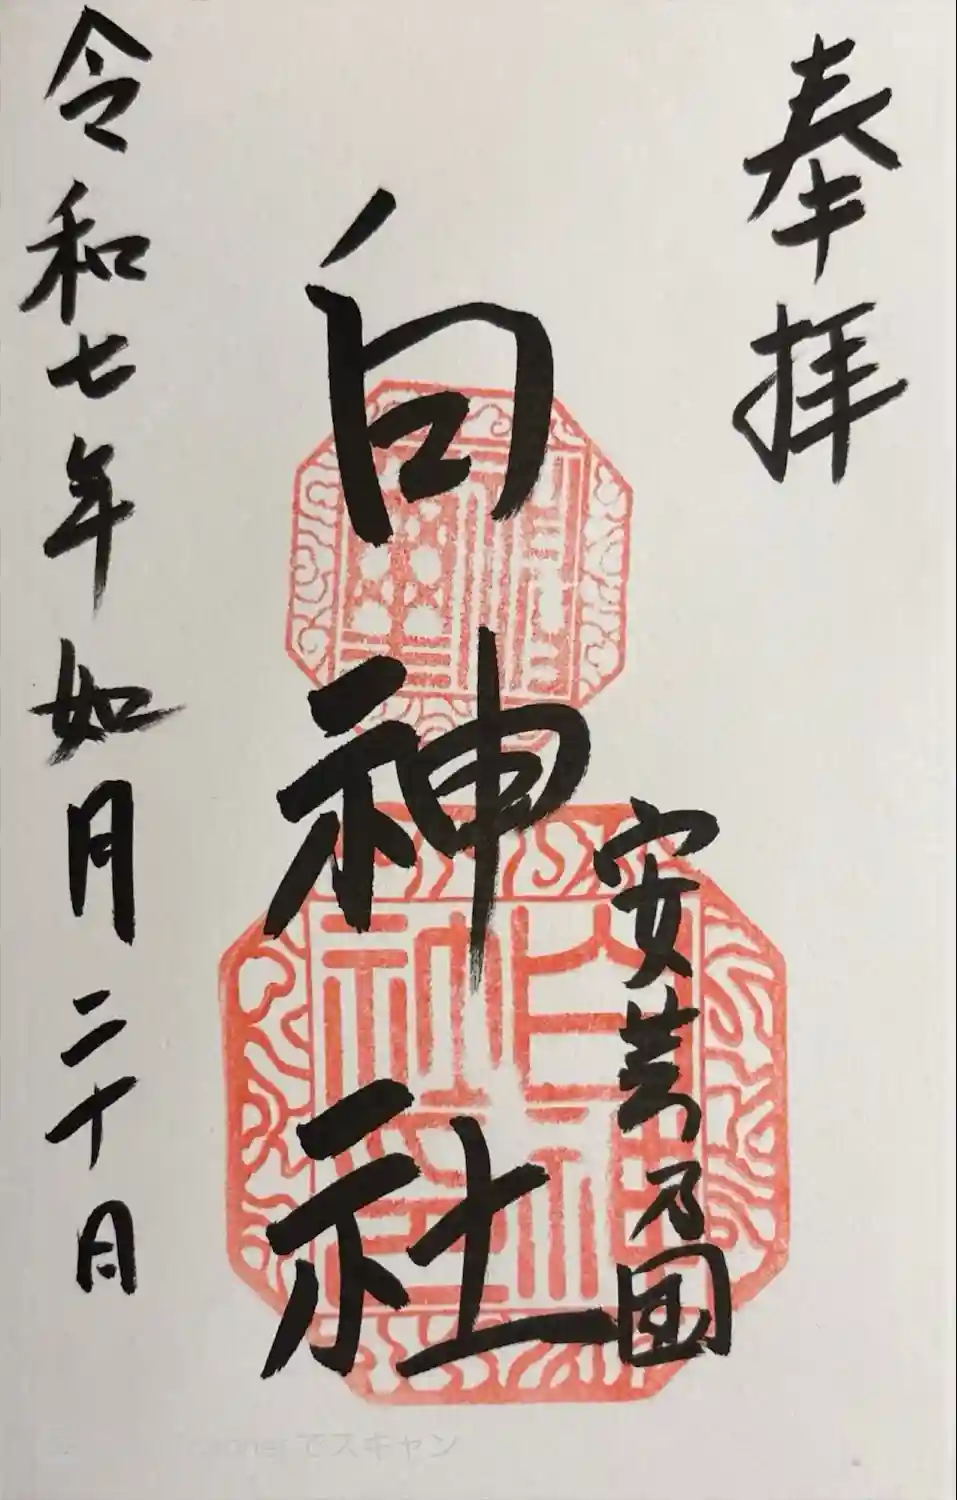 奉拝
安芸乃国
白神社
令和七年如月二十日
でスキャン